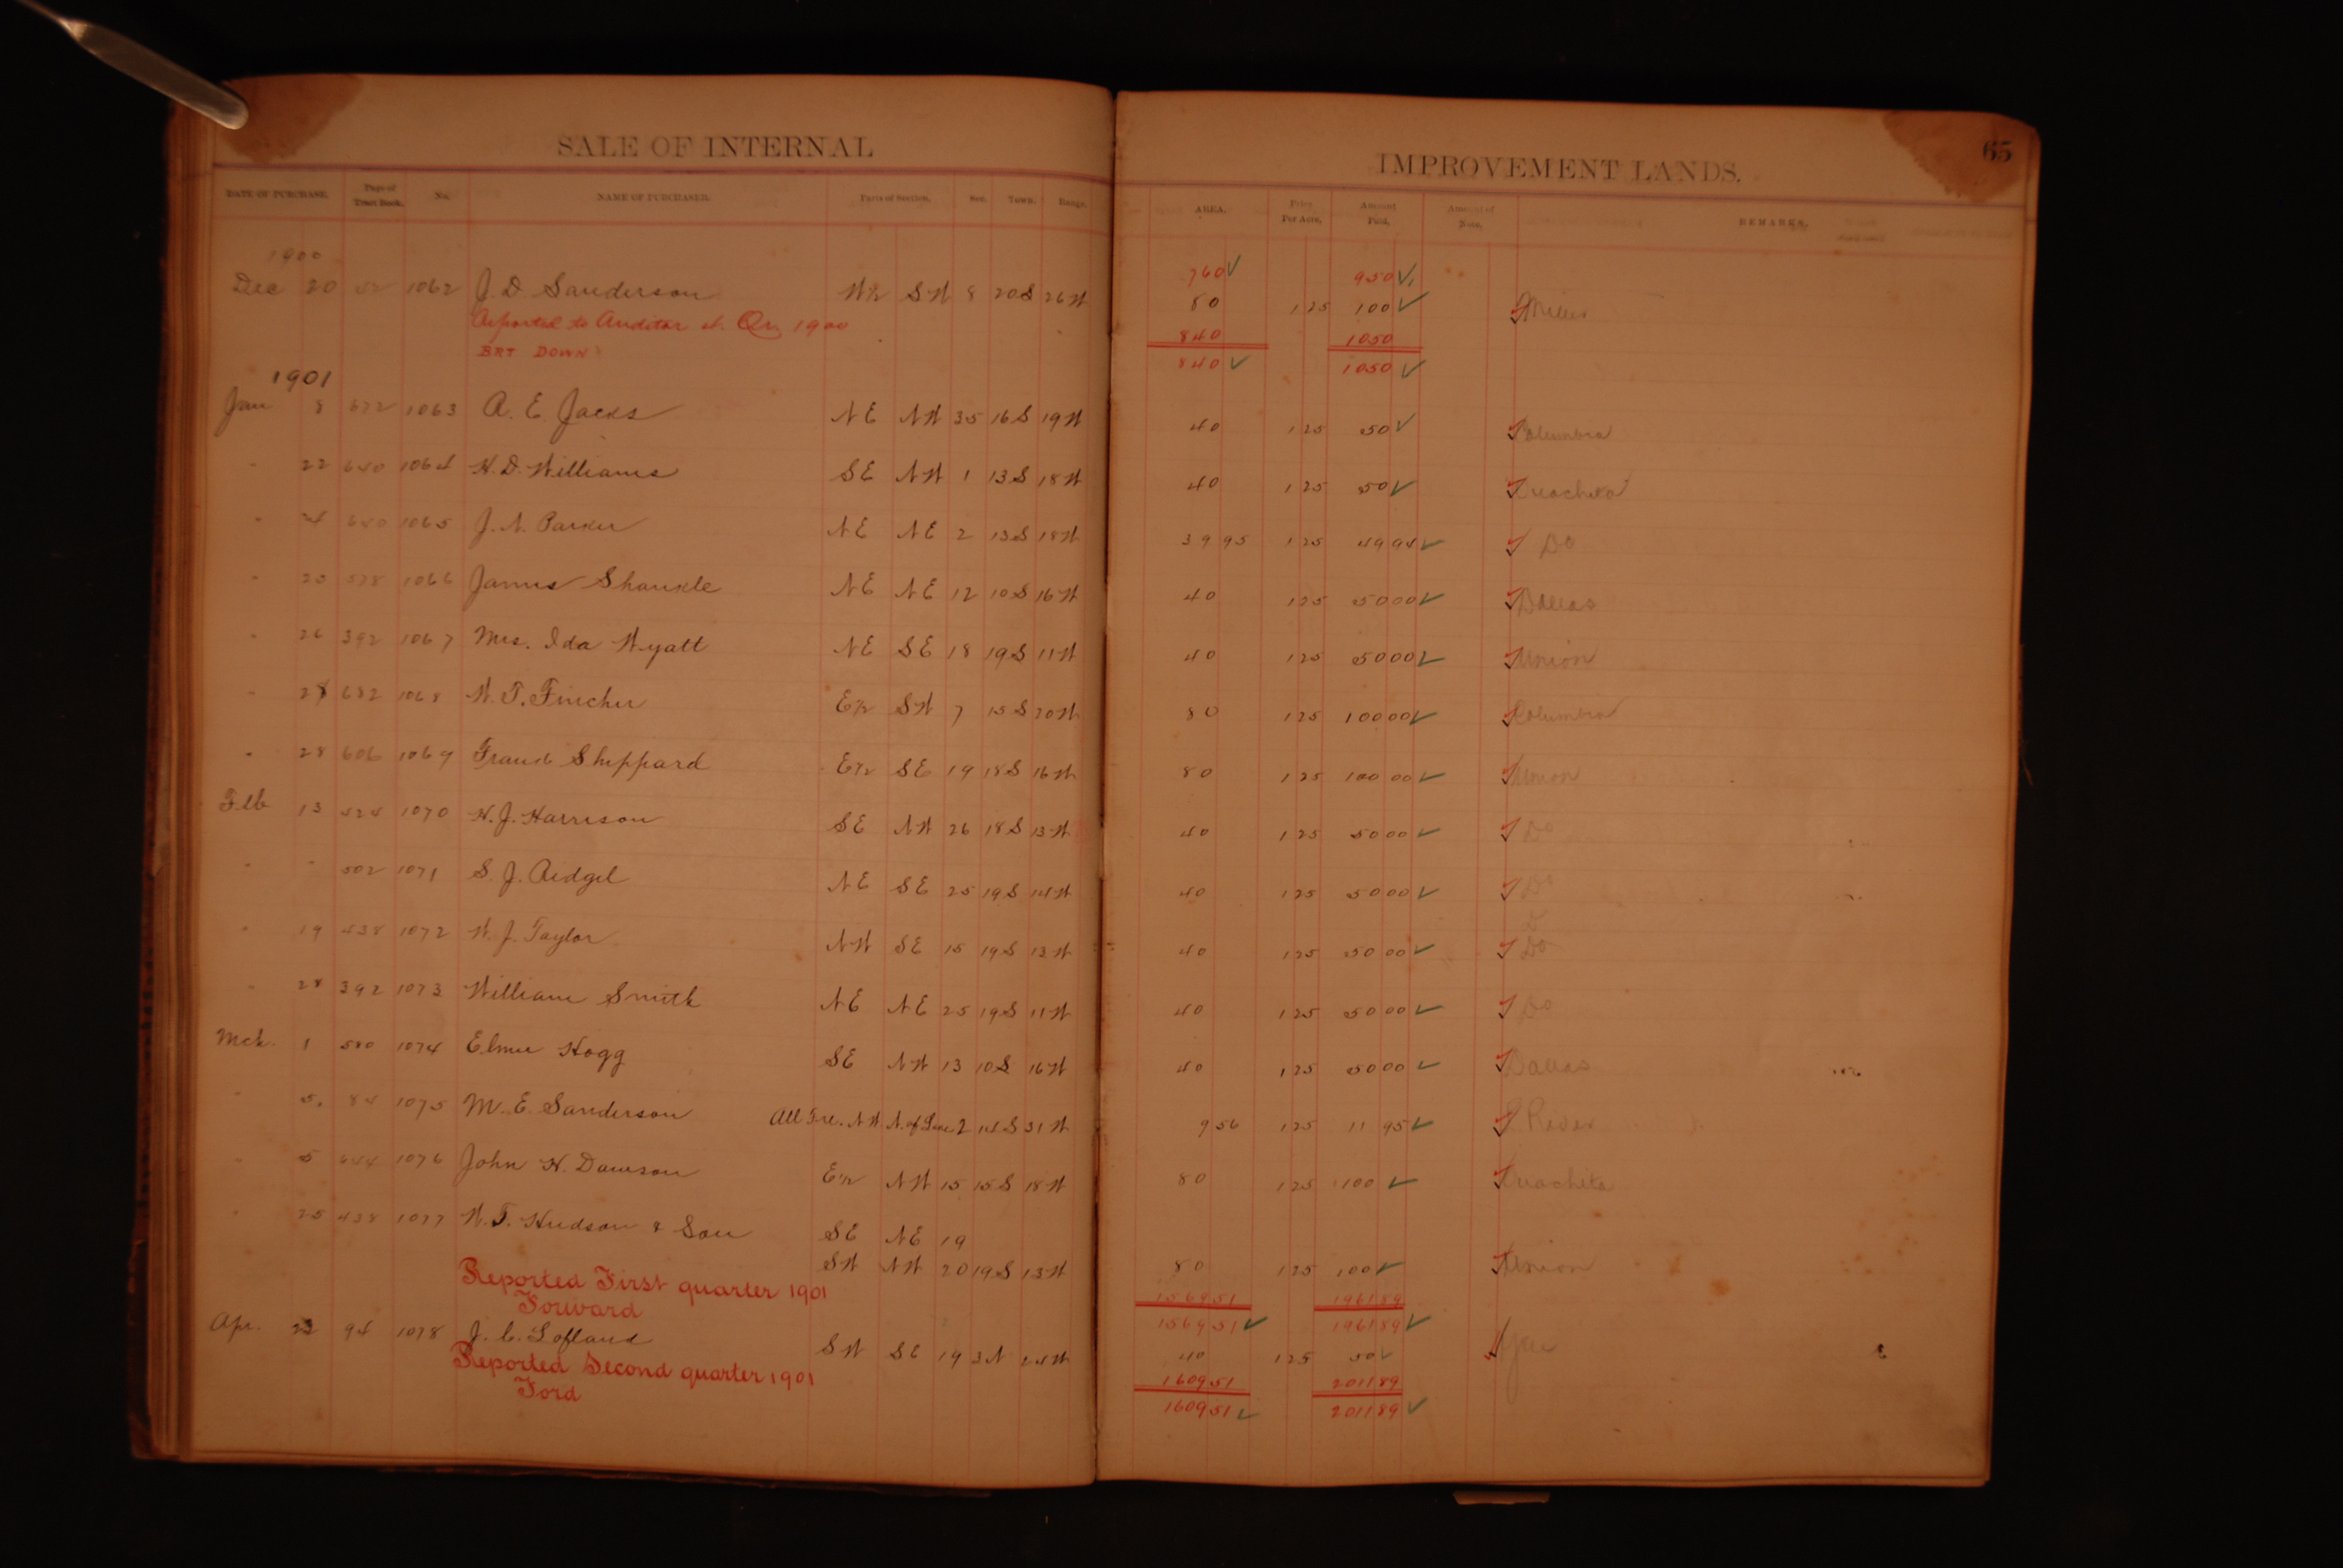 SALE OF INTERNAL IMPROVEMENT LANDS. 65
DATE OF PURCHASE. Page of Tract Book. No. NAME OF PURCHASER. Parts of Section. Sec. Town. Range. AREA. Price Per Acre. Amount Paid. Amount of Note. REMARKS.
1900
760 950
Dec 20 52 1062 J. D. Sanderson W½ SW 8 20S 26W 80 1 25 100 Miller
Reported to Auditor 4. Qr. 1900 840 1050
BRT DOWN 840 1050
1901
Jan 8 672 1063 A. E. Jacks NE NW 35 16S 19W 40 1 25 50 Columbia
" 22 640 1064 H. D. Williams SE NW 1 13S 18W 40 1 25 50 Ouachita
" 640 1065 J. N. Parker NE NE 2 13S 18W 39 95 1 25 49 94 Do
" 25 578 1066 James Shankle NE NE 12 10S 16W 40 1 25 50 00 Dallas
" 26 392 1067 Mrs. Ida Wyatt NE SE 18 19S 11W 40 1 25 50 00 Union
" 28 682 1068 W. T. Fincher E½ SW 7 15S 20W 80 1 25 100 00 Columbia
" 28 606 1069 Frank Sheppard E½ SE 19 18S 16W 80 1 25 100 00 Union
Feb 13 424 1070 H. J. Harrison SE NW 26 18S 13W 40 1 25 50 00 Do
" " 502 1071 S. J. Ridgel NE SE 25 19S 14W 40 1 25 50 00 Do
" 19 438 1072 W. J. Taylor NW SE 15 19S 13W 40 1 25 50 00 Do
" 28 392 1073 William Smith NE NE 25 19S 11W 40 1 25 50 00 Do
Mch. 1 580 1074 Elmer Hogg SE NW 13 10S 16W 40 1 25 50 00 Dallas
" 5. 84 1075 M. E. Sanderson All Frl. NW N. of Line 2 14S 31W 9 56 1 25 11 95 L. River
" 5 644 1076 John H. Dawson E½ NW 15 15S 18W 80 1 25 100 Ouachita
" 25 438 1077 W. T. Hudson & Son SE NE 19
SW NW 20 19S 13W 80 1 25 100 Union
Reported First quarter 1901 1569 51 1961 89
Forward 1569 51 1961 89
Apr. 22 94 1078 J. C. Lofland SW SE 19 3N 24W 40 1 25 50
Reported Second quarter 1901 1609 51 2011 89
Ford 1609 51 2011 89